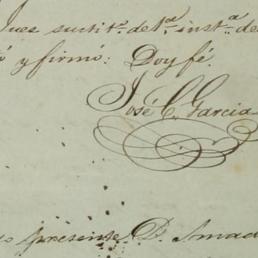 Juez sustit.º de 1.ª inst.ª de
y firmó: Doy fé.
José C. Garcia
presente D. Amad